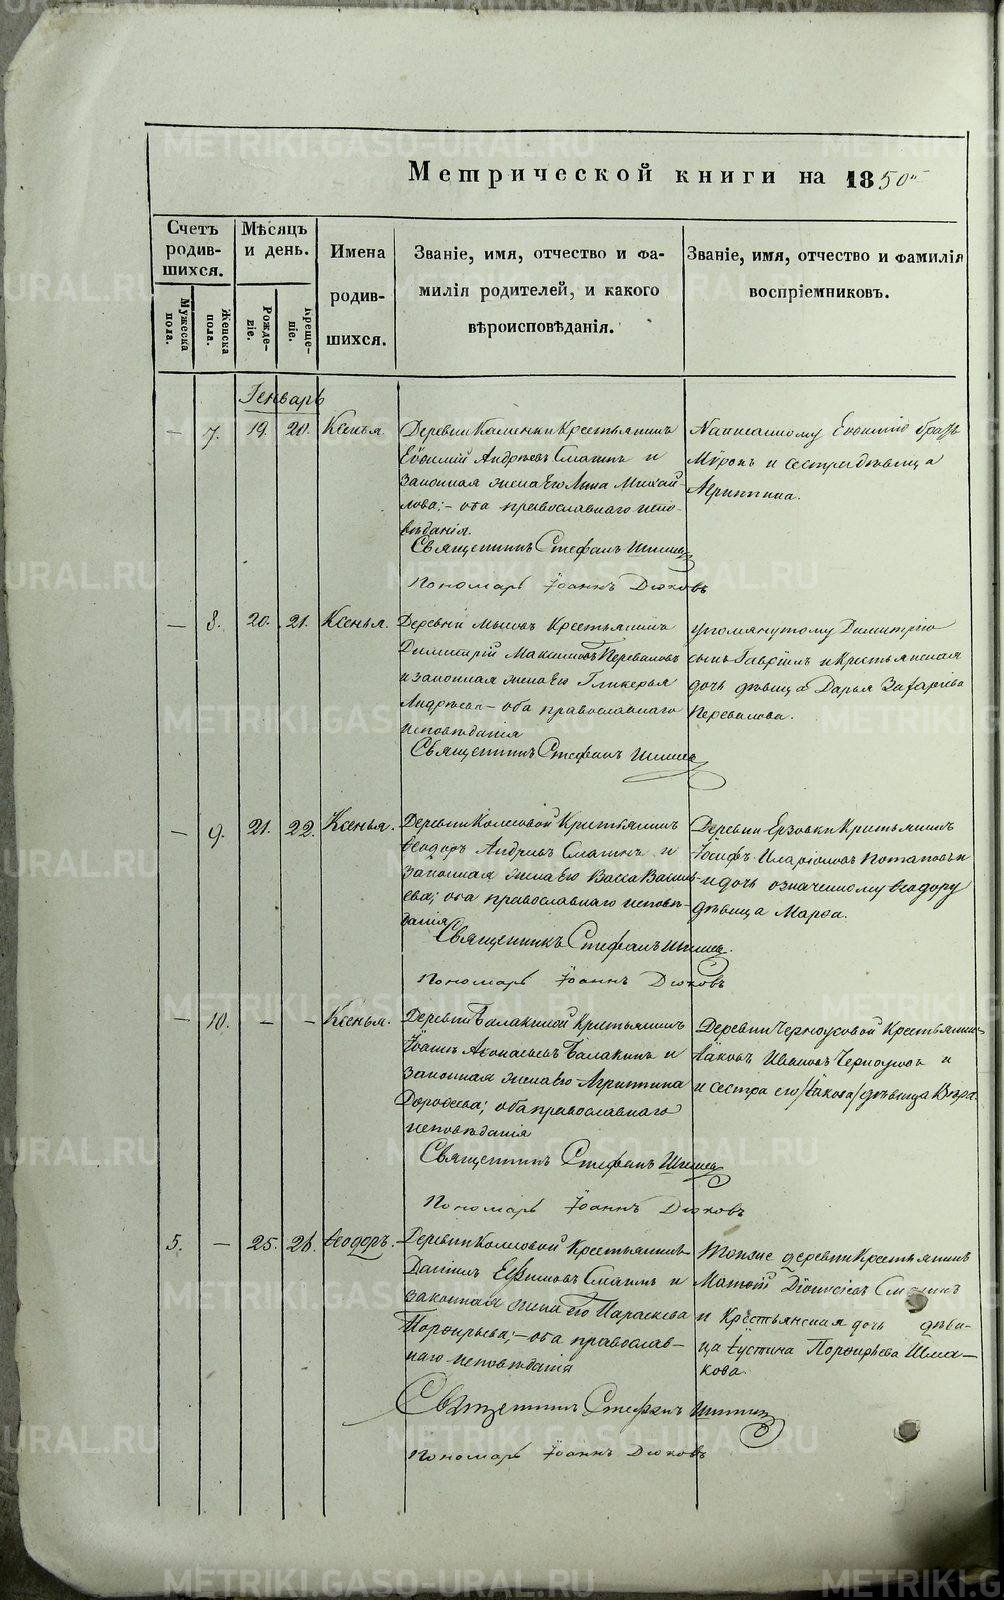 Метрической книги на 1850й
Счетъ родив-шихся.
Мѣсяцъ и день.
Имена родив-шихся.
Званіе, имя, отчество и фа-
милія родителей, и какого
вѣроисповѣданія.
Званіе, имя, отчество и фамилія
воспріемниковъ.
Мужеска пола.
Женска пола.
Рожде-ніе.
Креще-ніе.
Генварь
— 7. 19. 20. Ксенья
Деревни Каменки Крестьянинъ
Евѳимій Андреевъ Смагинъ и
законная жена его Анна Михай-
лова; – оба православнаго испо-
вѣданія.
Священникъ Стефанъ
Пономарь Іоаннъ Дюковъ
Написанному Евѳимію братъ
Мѵронъ и сестра дѣвица
Агриппина.
— 8. 20. 21. Ксенья.
Деревни Мысовъ Крестьянинъ
Димитрій Максимовъ Переваловъ
и законная жена его Гликерья
Андреева – оба православнаго
исповѣданія
Священникъ Стефанъ
упомянутому Димитрію
сынъ Гавріилъ и Крестьянская
дочь дѣвица Дарья Захарова
Перевалова.
— 9. 21. 22. Ксенья.
Деревни Колесовой Крестьянинъ
Ѳеодоръ Андреевъ Смагинъ и
законная жена его Васса Василь-
ева; оба православнаго исповѣ-
данія
Священникъ Стефанъ
Пономарь Іоаннъ Дюковъ
Деревни Ерзовки Крестьянинъ
Іосифъ Иларіоновъ Потаповъ и
и дочь означенному Ѳеодору
дѣвица Марѳа.
— 10. — — Ксенья.
Деревни Балакиной Крестьянинъ
Іоаннъ Аѳонасьевъ Балакинъ и
законная жена его Агриппина
Дороѳеева; оба православнаго
исповѣданія
Священникъ Стефанъ
Пономарь Іоаннъ Дюковъ
Деревни Черноусовой Крестьянинъ
Іаковъ Ивановъ Черноусовъ и
и сестра его /Іакова/ дѣвица Вѣра.
5. — 25. 26. Ѳеодоръ.
Деревни Колесовой Крестьянинъ
Даніилъ Ефимовъ Смагинъ и
законная жена его Параскева
Порфирьева; – оба православ-
наго исповѣданія
Священникъ Стефанъ
Пономарь Іоаннъ Дюковъ
Тоя же деревни Крестьянинъ
Матѳій Діонисіевъ Смагинъ
и Крестьянская дочь дѣви-
ца Іустина Порфирьева Шма-
кова.
METRIKI.GASO-URAL.RU